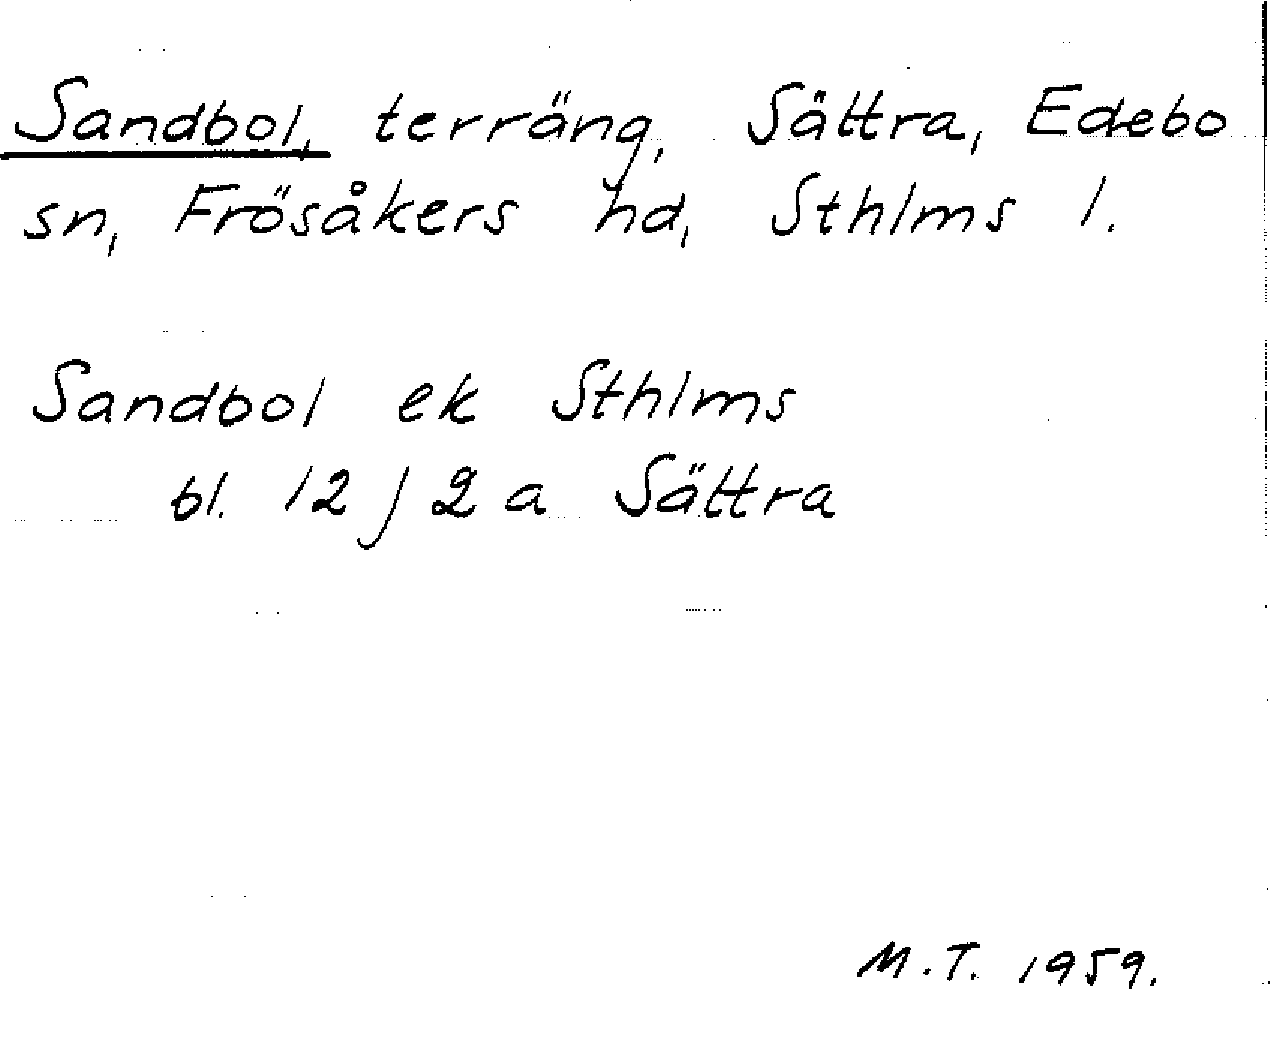 Sandbol, terräng, Sättra, Edebo
sn, Frösåkers hd, Sthlms l.
Sandbol ek Sthlms
bl. 12 j 2 a Sättra
M.T. 1959.